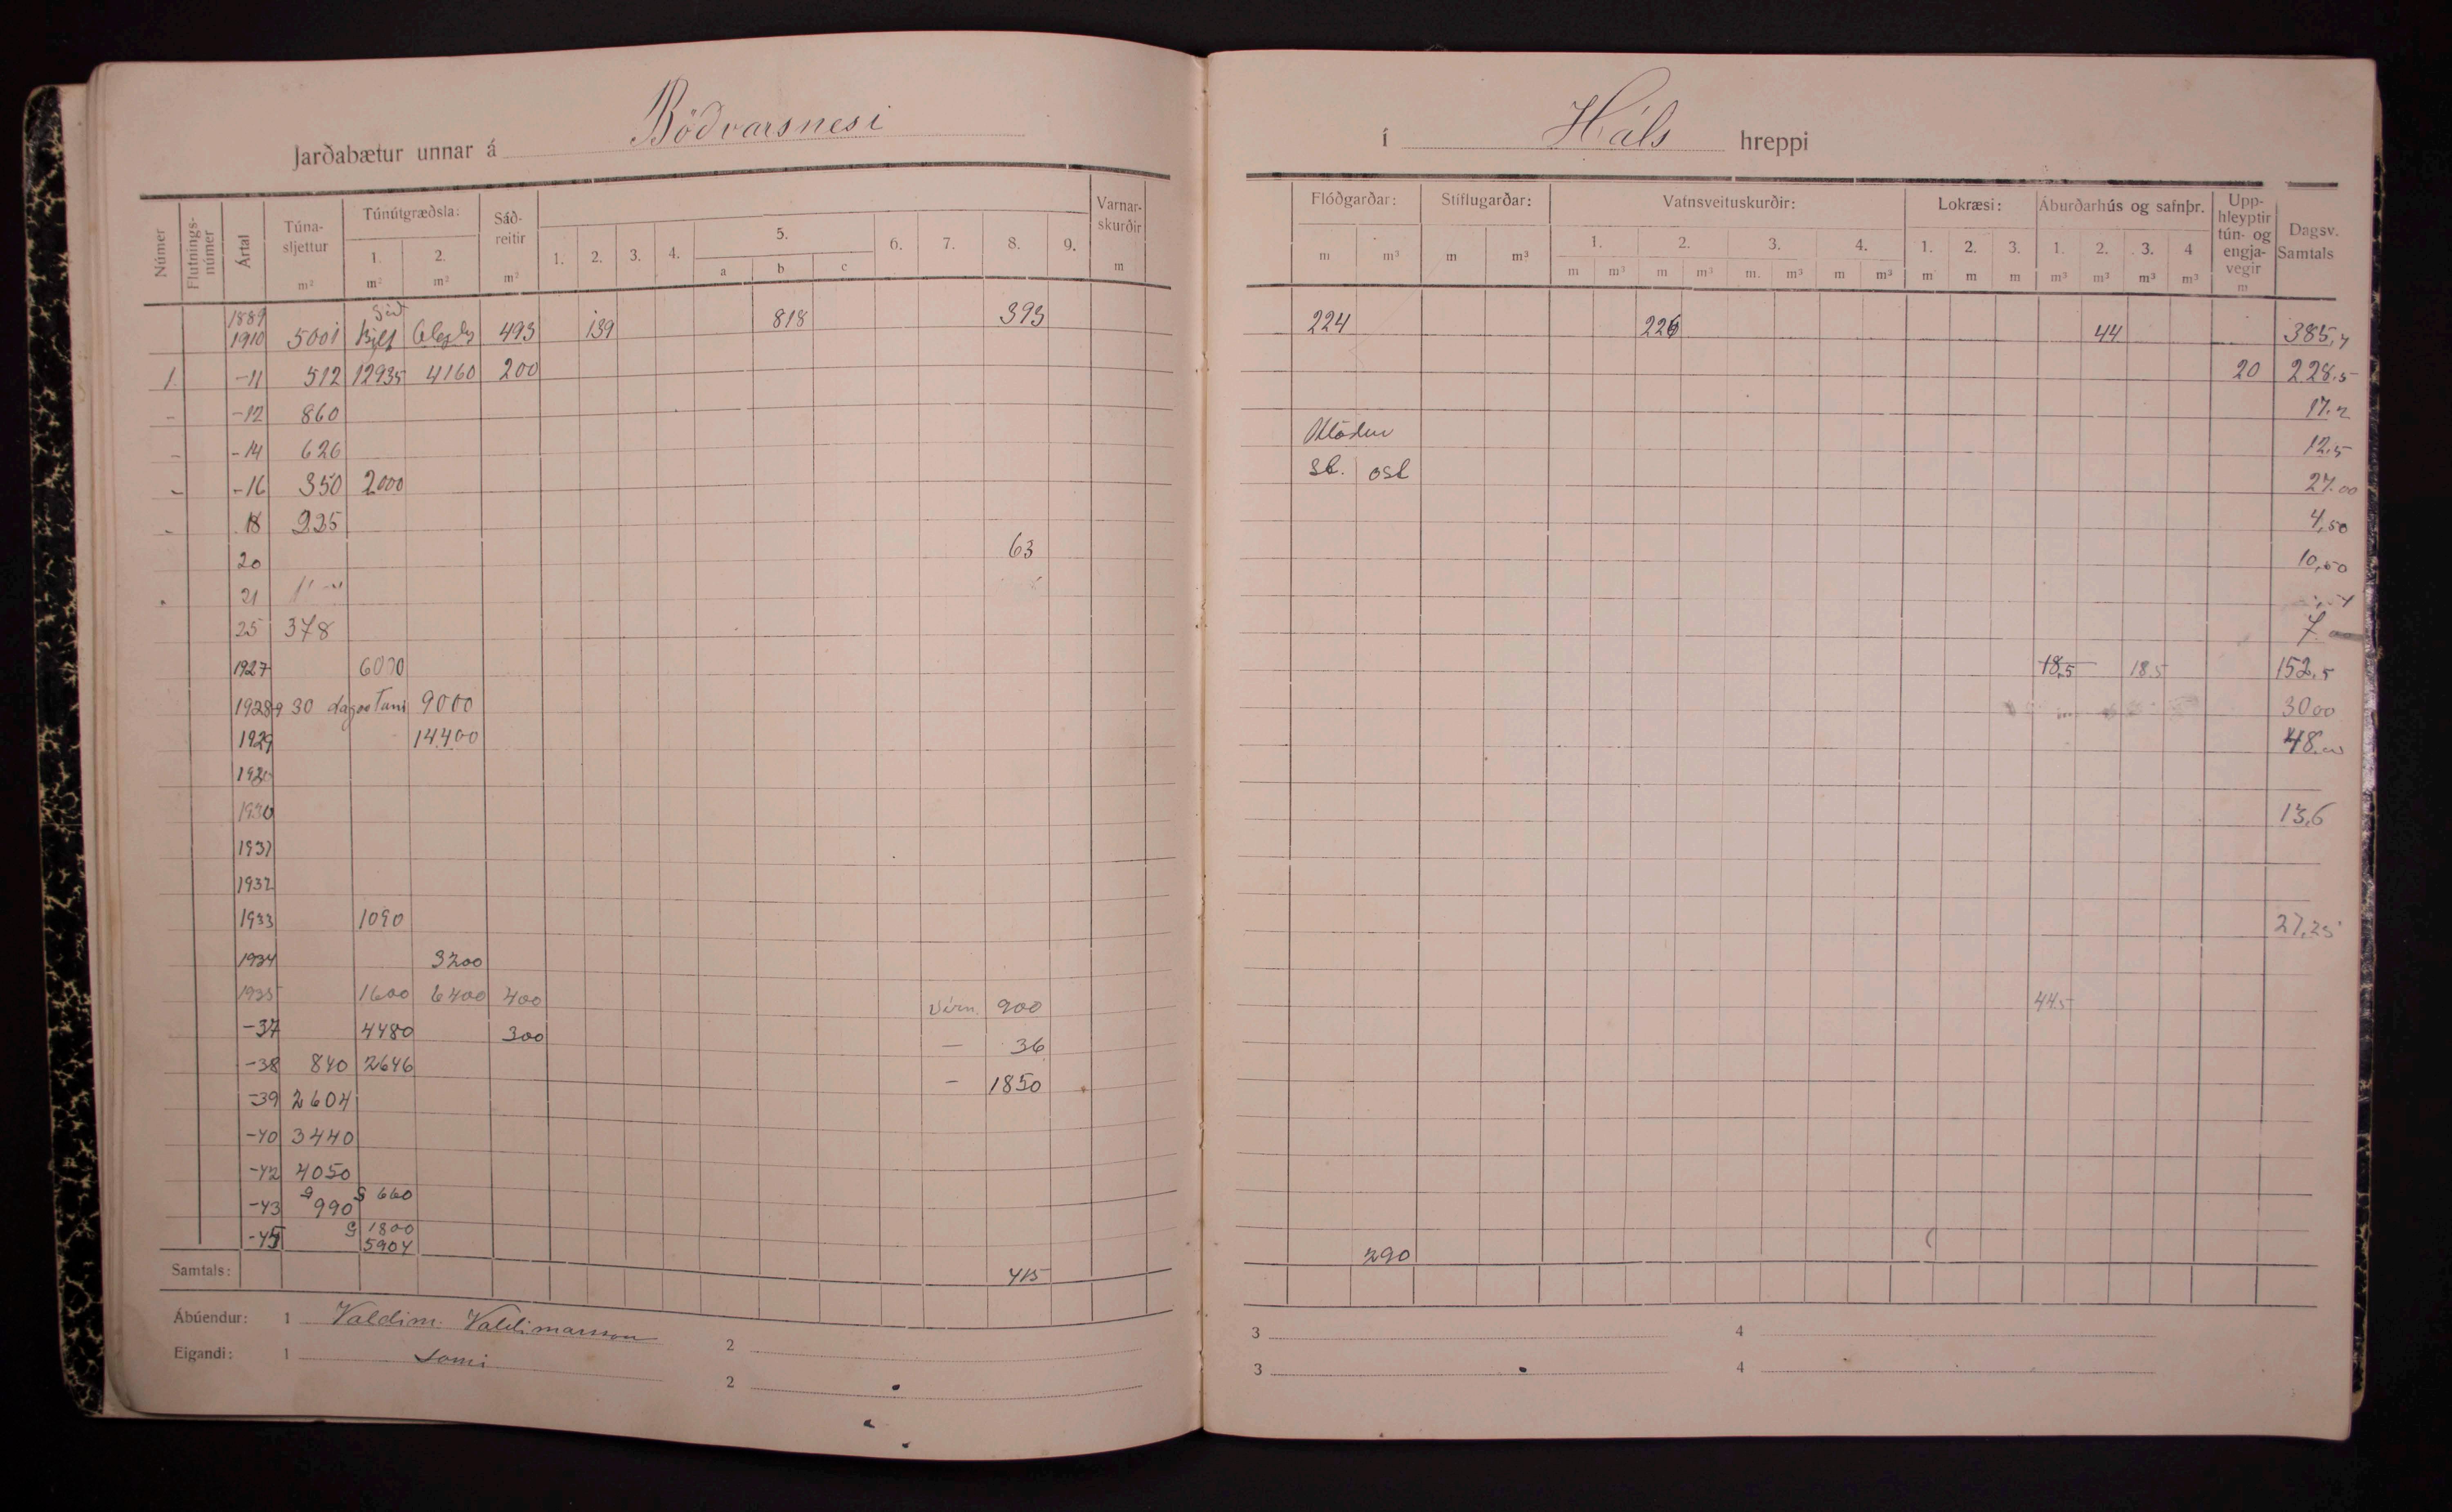 Jarðabætur unnar á Böðvarsnesi
í Háls hreppi
Númer Flutnings-númer Ártal Túna-sljettur m² Túnútgræðsla: 1. m² 2. m² Sáð-reitir m² 1. 2. 3. 4. 5. a b c 6. 7. 8. 9. Varnar-skurðir m
Flóðgarðar: m m³ Stíflugarðar: m m³ Vatnsveituskurðir: 1. m m³ 2. m m³ 3. m. m³ 4. m m³ Lokræsi: 1. m 2. m 3. m Áburðarhús og safnþr. 1. m³ 2. m³ 3. m³ 4 m³ Upp-hleyptir tún- og engja-vegir m Dagsv. Samtals
1889
1910 5001 493 139 818 393 224 226 44 385,4
1. -11 512 12935 4160 200 20 228.5
- -12 860 17.2
- -14 626 12.5
- -16 350 2000 27.00
- 18 225 4,50
20 63 10,50
21
25 378 7
1927 6070 18,5 18.5 152,5
1928 30 9000 3000
1929 14400 48.
1930 13,6
1931
1932
1933 1090 27,25
1934 3200
1935 1600 6400 400 900 44.5
-37 4480 300 — 36
-38 840 2646 — 1850
-39 2604
-40 3440
-42 4050
-43 990 660
-45 1800
5904 415 290
Samtals:
Ábúendur: 1 Valdim. Valdimarsson 2 3 4
Eigandi: 1 Sami 2 3 4